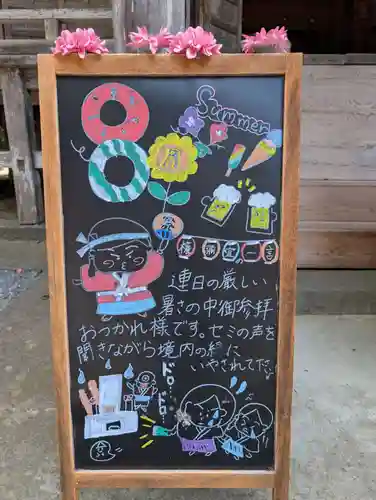 Summer
連日の厳しい
暑さの中御参拝
おつかれ様です。セミの声を
聞きながら境内の絵に
いやされて下さい
ドロ…
ドロ…